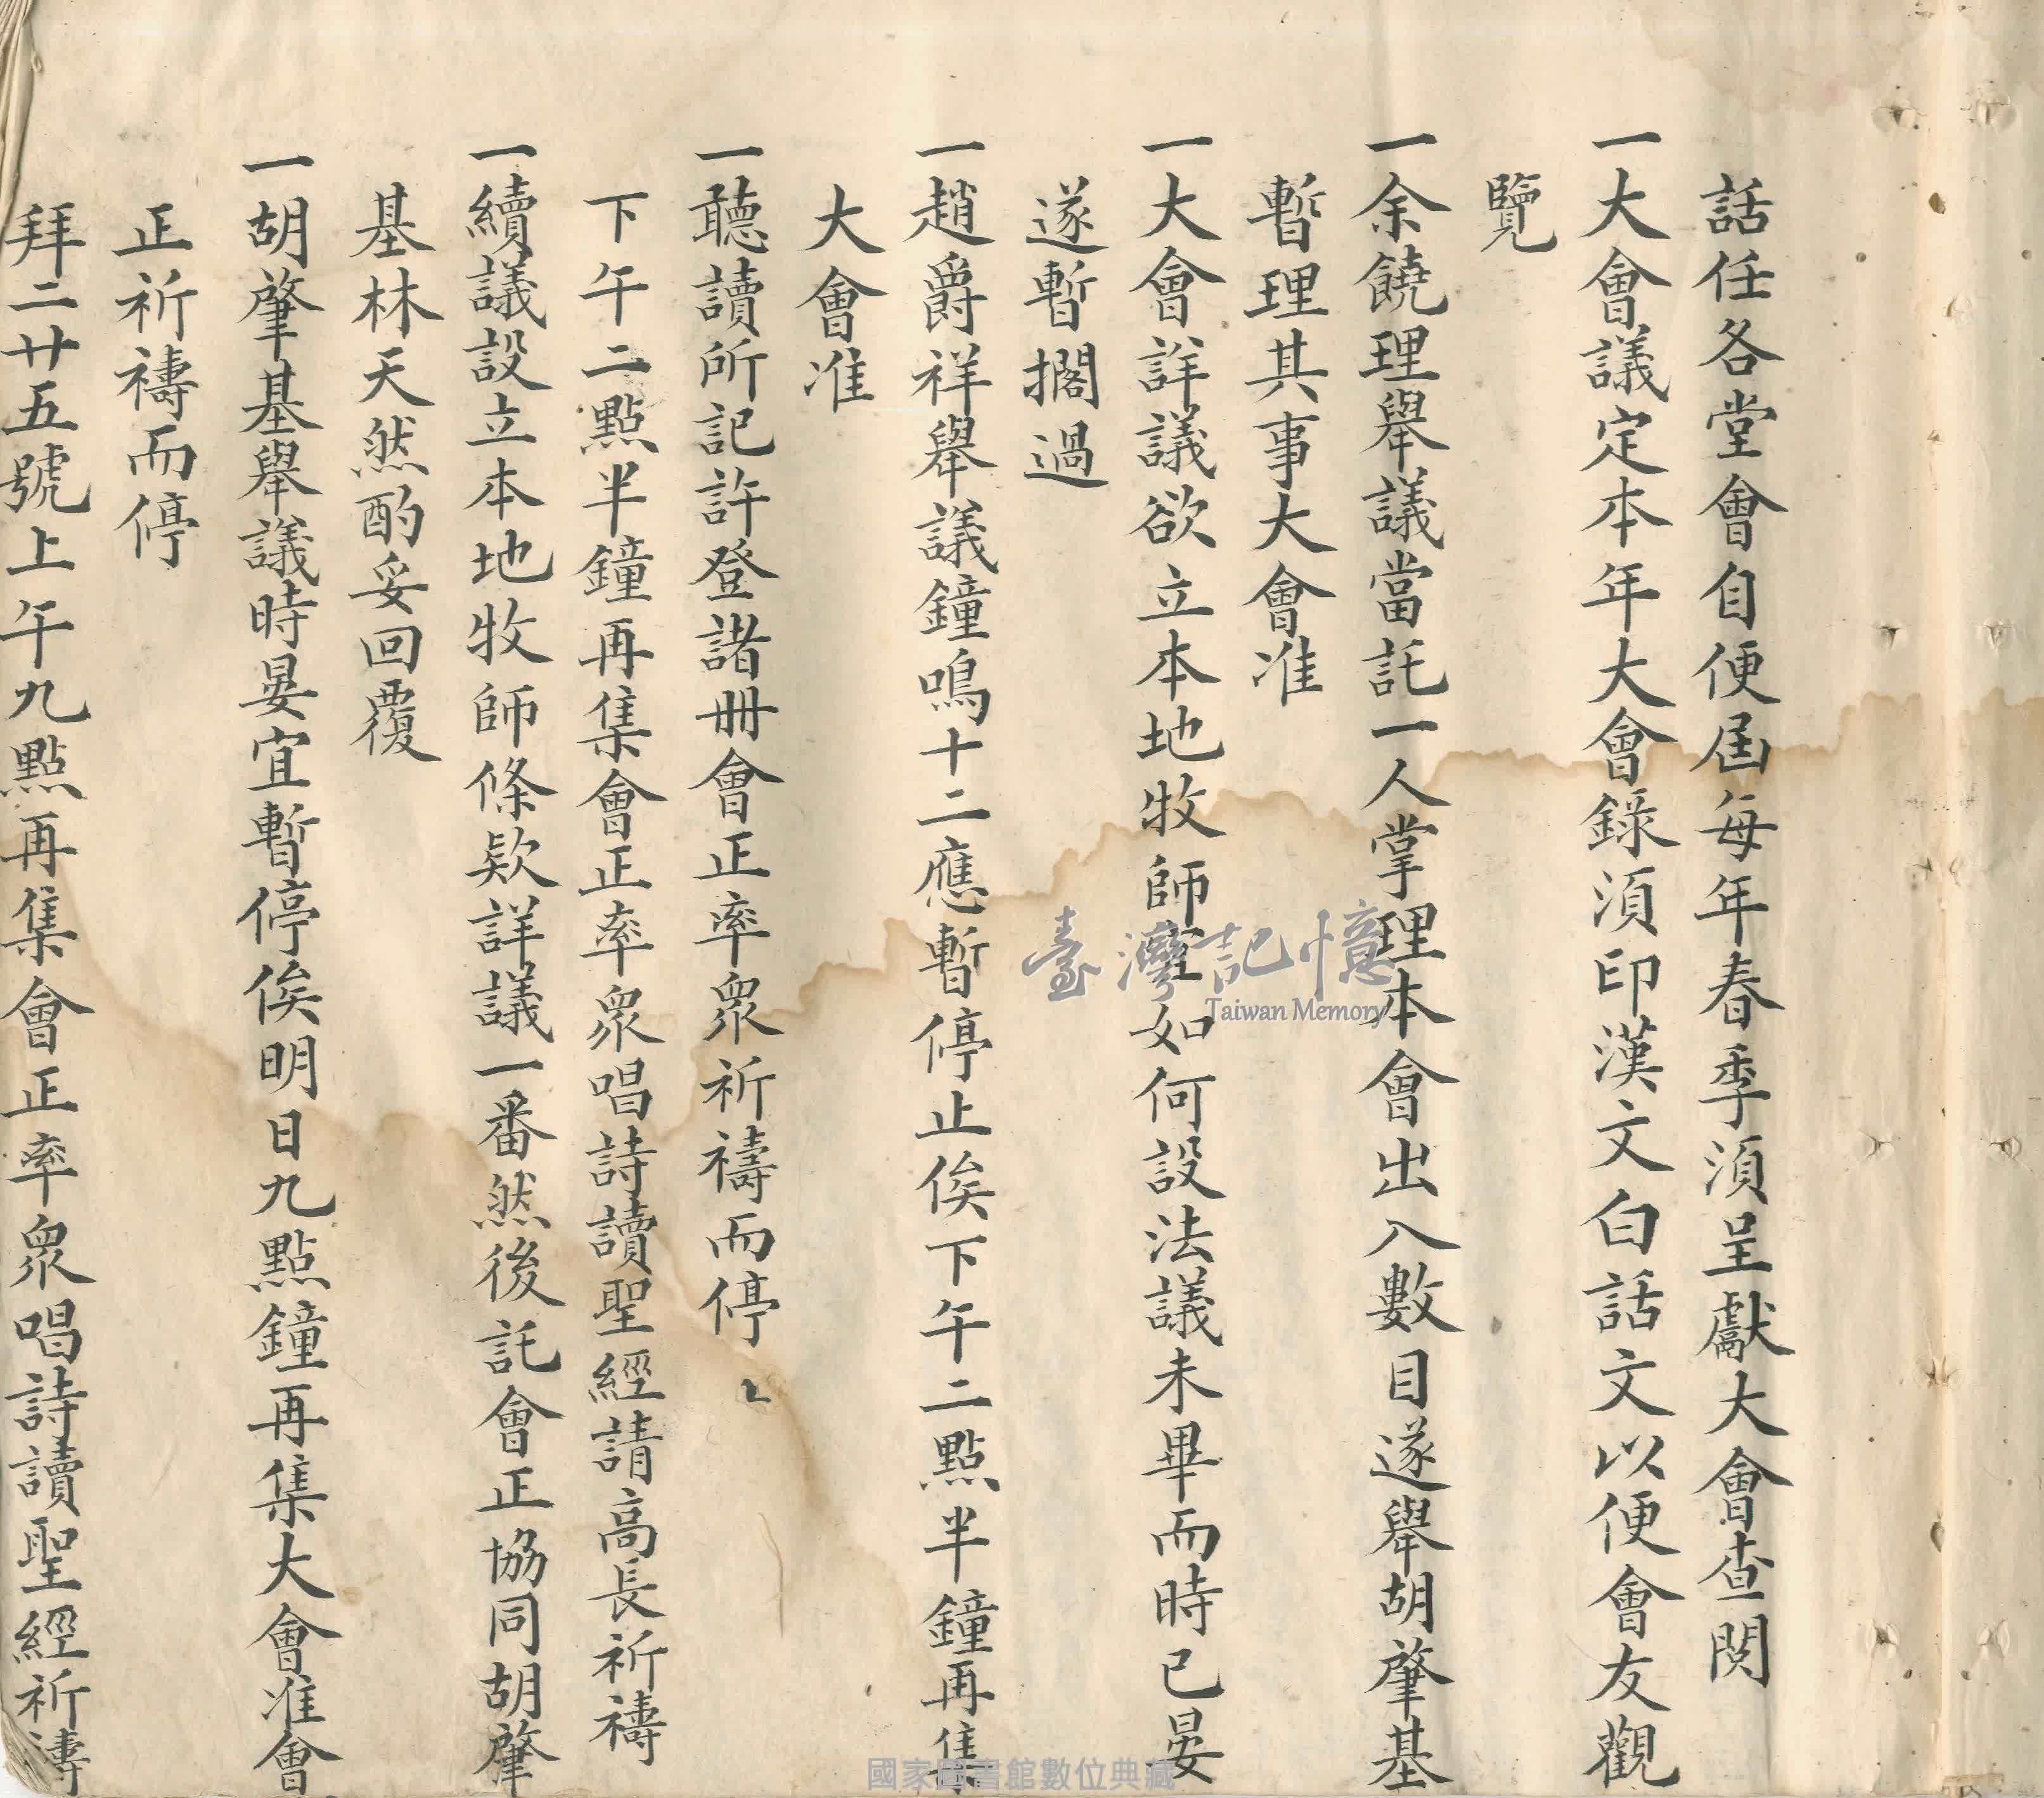 話任各堂會自便屆每年春季須呈獻大會查閱
一大會議定本年大會錄須印漢文白話文以便會友觀
覽
一余饒理舉議當託一人掌理本會出入數目遂舉胡肇基
暫理其事大會准
一大會詳議欲立本地牧師應如何設法議未畢而時已晏
遂暫擱過
一趙爵祥舉議鐘鳴十二應暫停止俟下午二點半鐘再集
大會准
一聽讀所記許登諸冊會正率眾祈禱而停
下午二點半鐘再集會正率眾唱詩讀聖經請高長祈禱
一續議設立本地牧師條欵詳議一番然後託會正協同胡肇
基林天然酌妥回覆
一胡肇基舉議時晏宜暫停俟明日九點鐘再集大會准會
正祈禱而停
拜二廿五號上午九點再集會正率眾唱詩讀聖經祈禱
臺灣記憶
Taiwan Memory
國家圖書館數位典藏